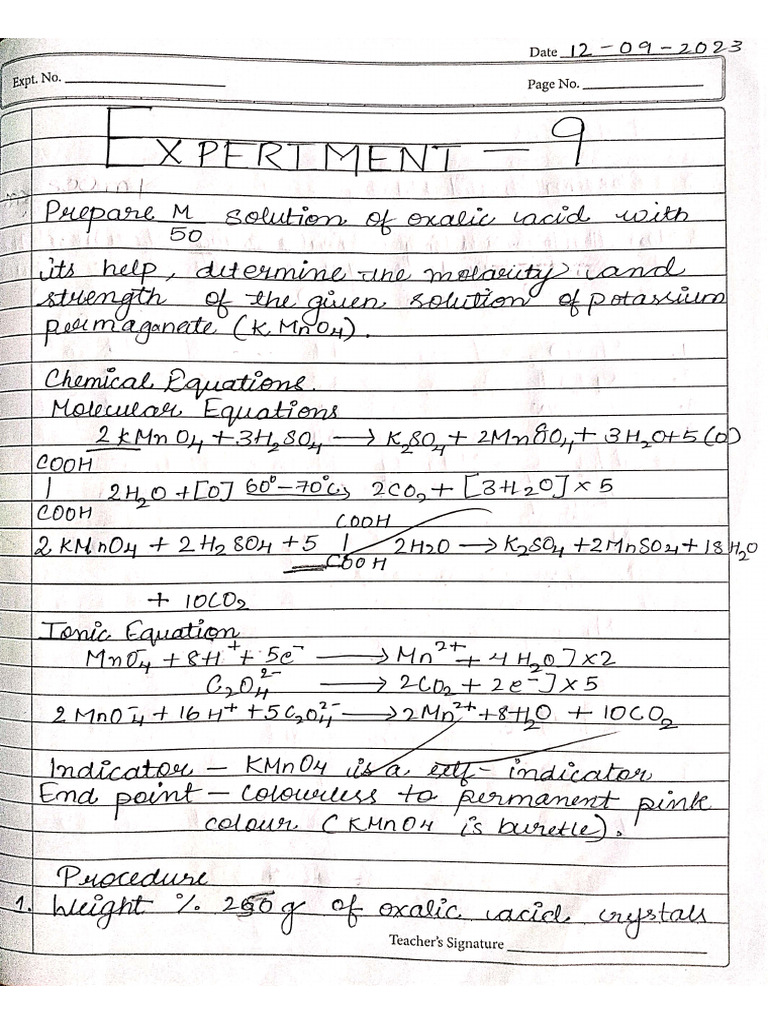 Date 12-09-2023
Expt. No.
Page No.
EXPERIMENT - 9
Prepare M/50 solution of oxalic acid with
its help, determine the molarity and
strength of the given solution of potassium
permaganate (KMnO4).
Chemical Equations.
Molecular Equations
2KMnO4 + 3H2SO4 → K2SO4 + 2MnSO4 + 3H2O + 5(O)
COOH
| 2H2O + [O] 60°-70°C → 2CO2 + [3H2O] × 5
COOH
COOH
2KMnO4 + 2H2SO4 + 5 | 2H2O → K2SO4 + 2MnSO4 + 18H2O
COOH
+ 10CO2
Ionic Equation
MnO4⁻ + 8H⁺ + 5e⁻ → Mn²⁺ + 4H2O] × 2
C2O4²⁻ → 2CO2 + 2e⁻] × 5
2MnO4⁻ + 16H⁺ + 5C2O4²⁻ → 2Mn²⁺ + 8H2O + 10CO2
Indicator - KMnO4 is a self-indicator
End point - Colourless to permanent pink
colour (KMnO4 is buretle).
Procedure
1. Weight % 250g of oxalic acid crystals
Teacher's Signature